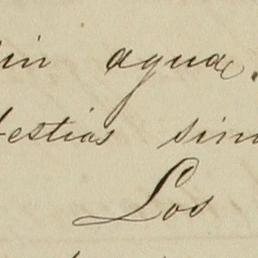 sin agua.
bestias sin
Los